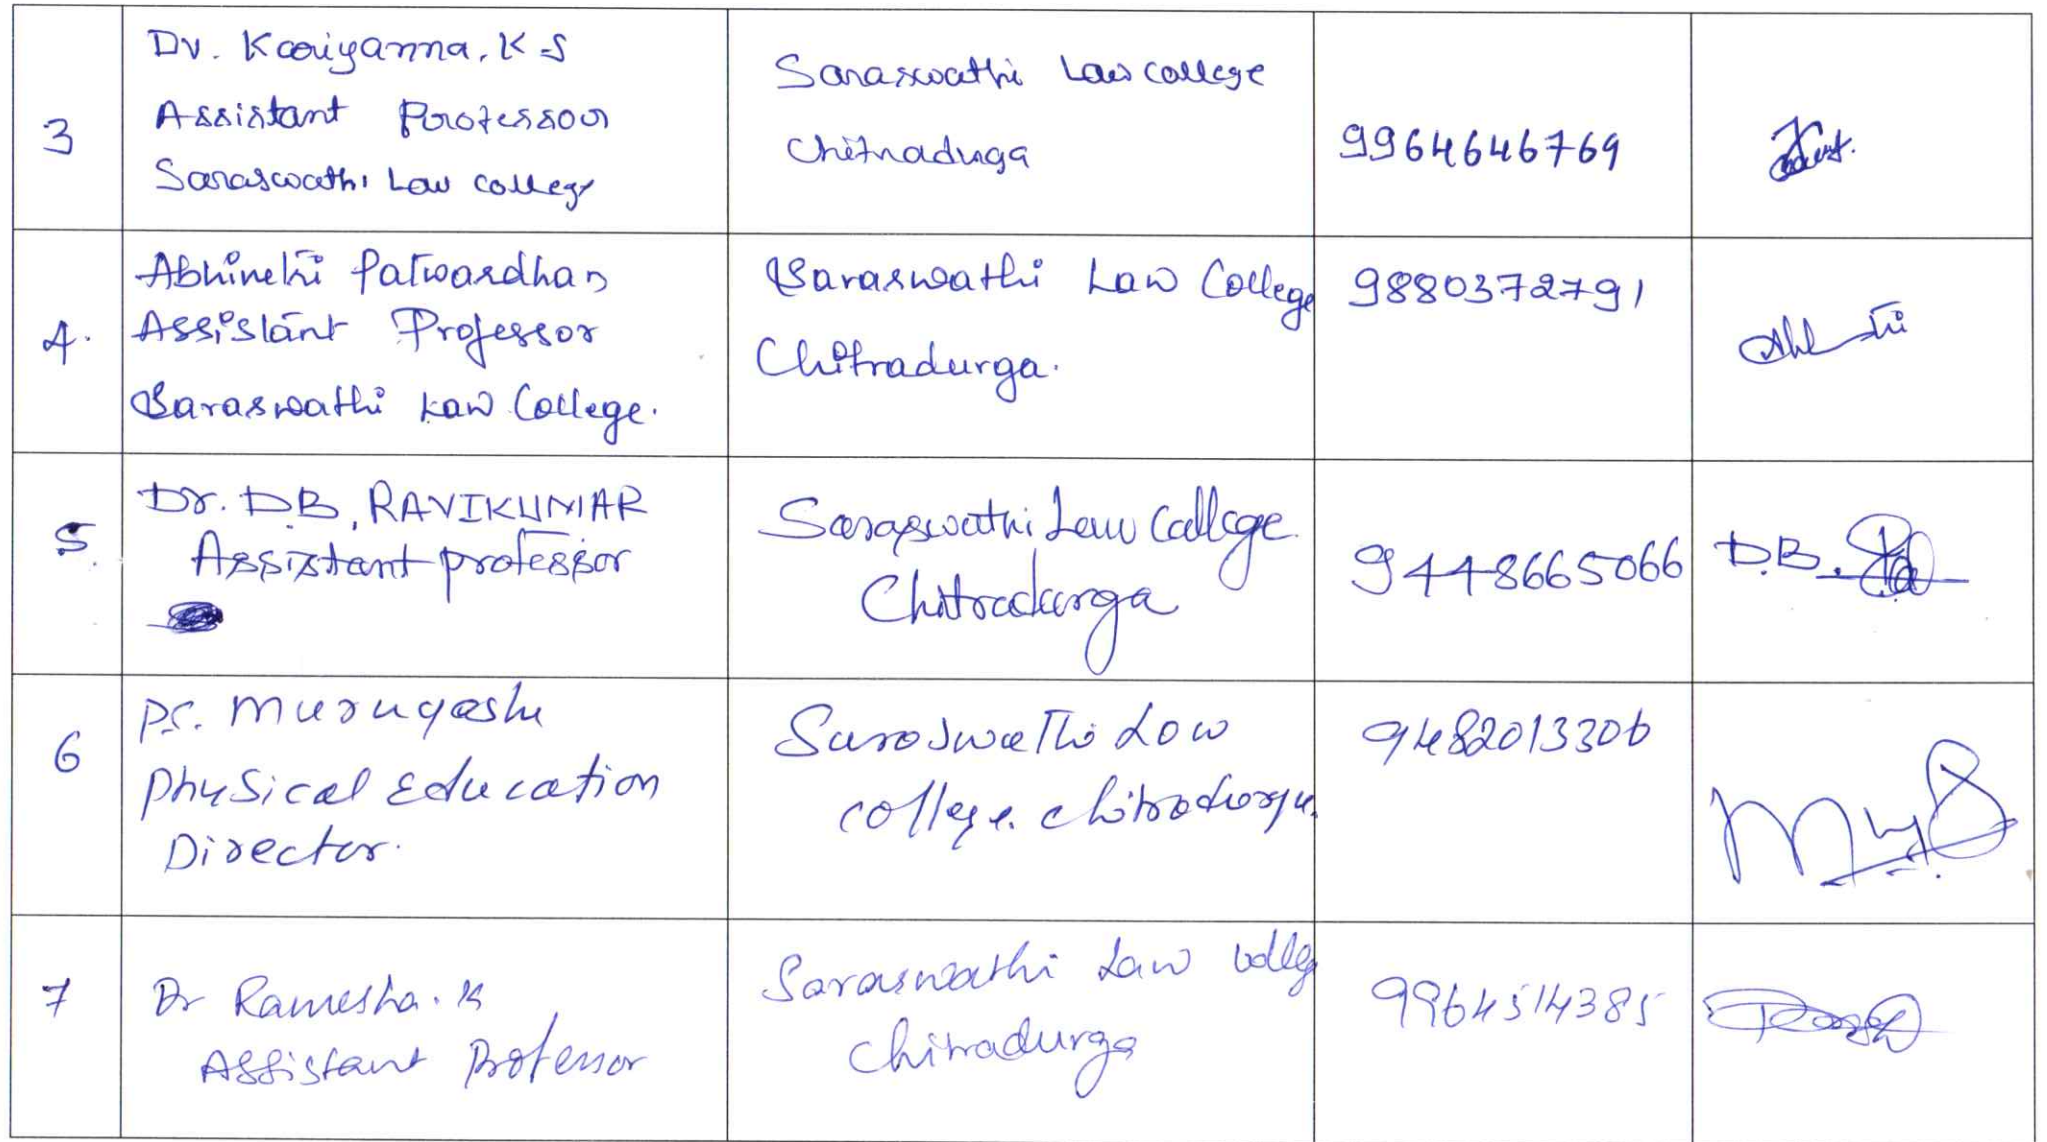 3
Dr. Kariyanna. K S
Assistant Professor
Saraswathi Law college
Saraswathi Law college
Chitradurga
9964646769
4.
Abhinethi Patwardhan
Assistant Professor
Saraswathi Law College.
Saraswathi Law College
Chitradurga.
9880372791
5.
Dr. D.B, RAVIKUMAR
Assistant professor
Saraswathi Law College
Chitradurga
9448665066
D.B.
6
P.S. Murugashu
Physical Education
Director.
Saraswathi Law
college. chitradurga.
9482013306
7
Dr Ramesha. K
Assistant Professor
Saraswathi Law Colleg
Chitradurga
9964514385